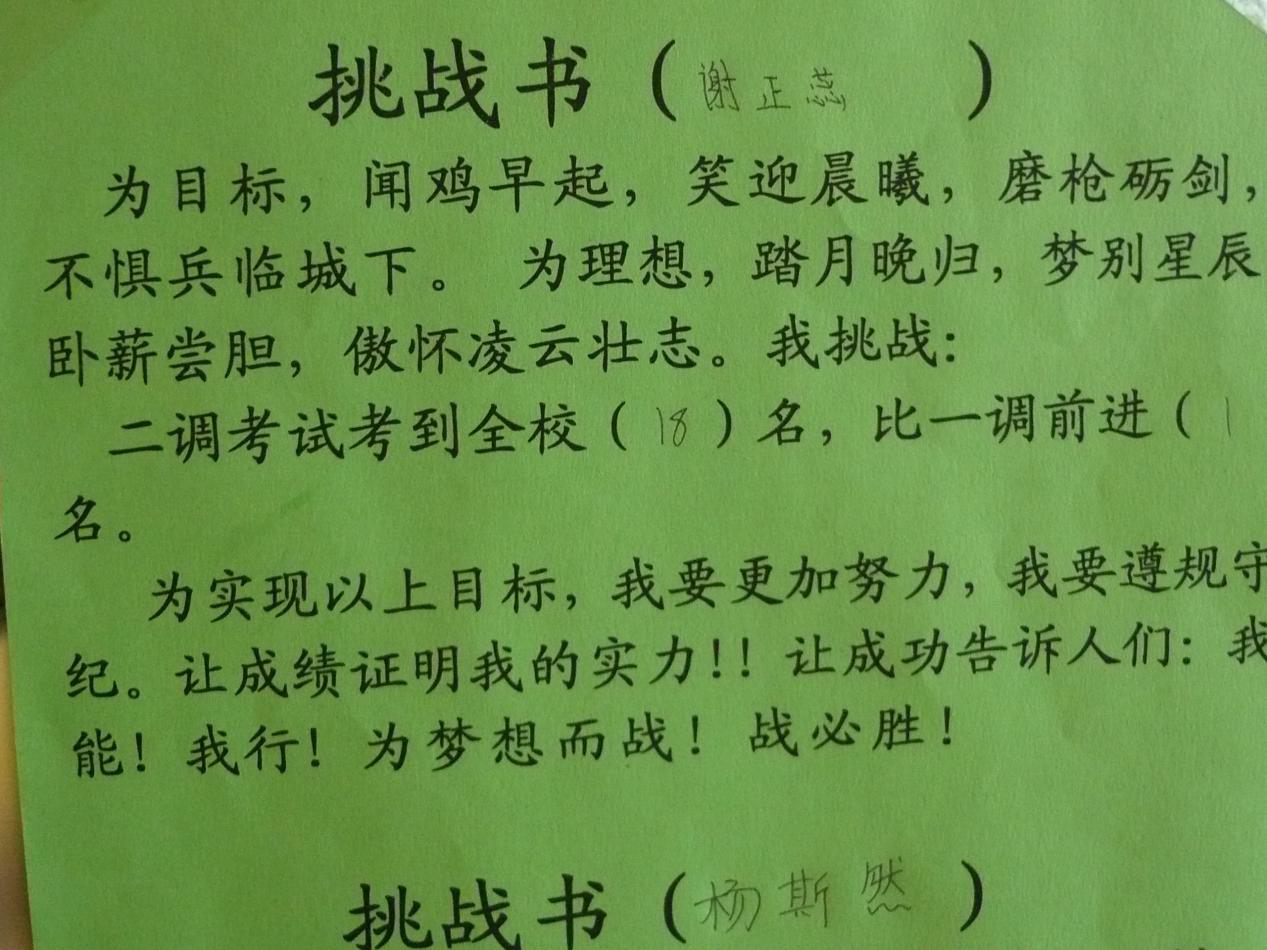 挑战书（谢正蕊　　）
为目标，闻鸡早起，笑迎晨曦，磨枪砺剑，
不惧兵临城下。 为理想，踏月晚归，梦别星辰
卧薪尝胆，傲怀凌云壮志。我挑战：
二调考试考到全校（18）名，比一调前进（1
名。
为实现以上目标，我要更加努力，我要遵规守
纪。让成绩证明我的实力！！让成功告诉人们：我
能！我行！为梦想而战！战必胜！
挑战书（杨斯然　）